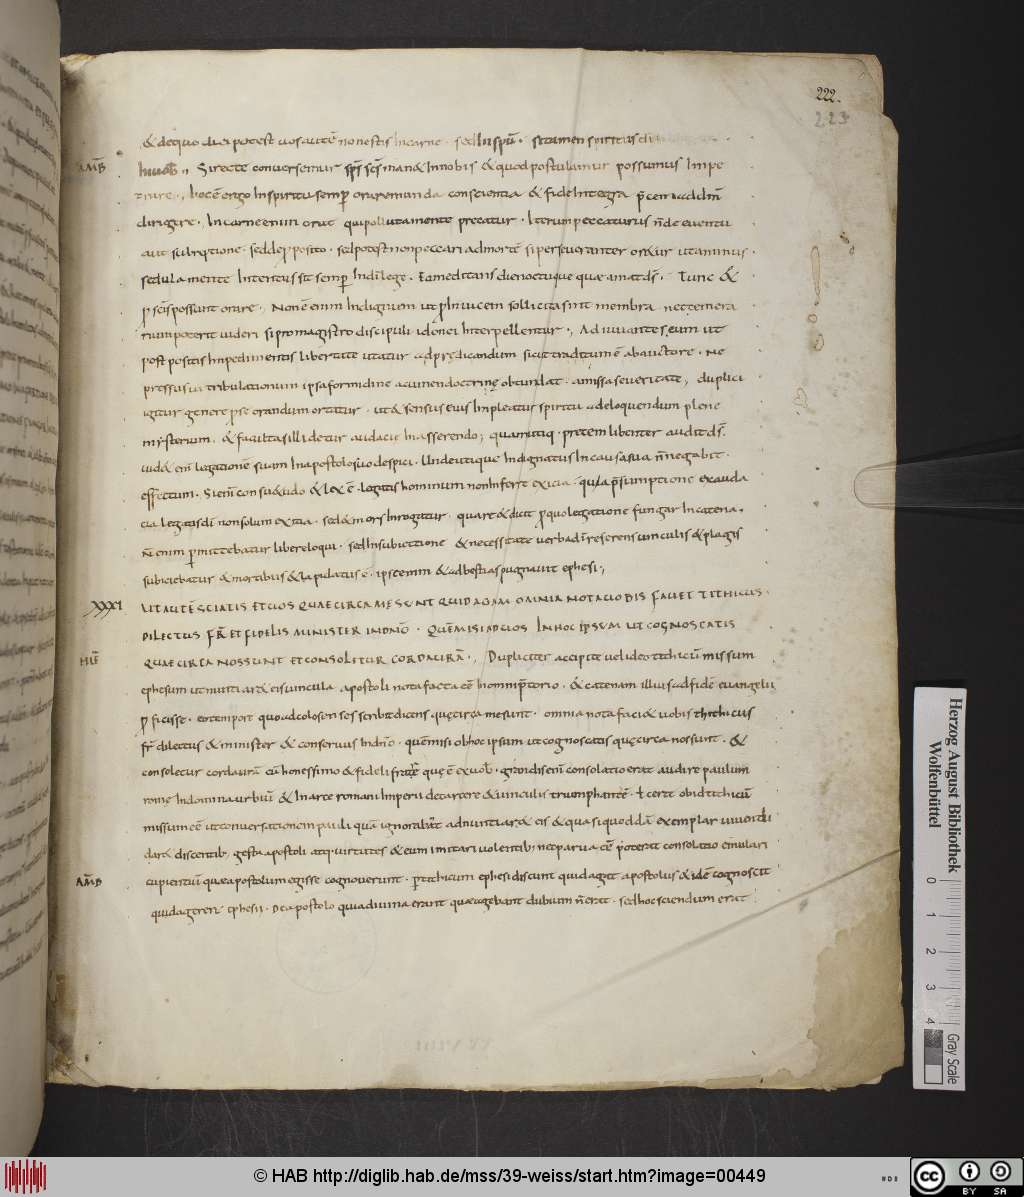 222.
223
& dequo dici potest uos autē non estis In carne · sed In spū · si tamen spiritus di
AMB̄ In uob̄ ,, Si recte conuersemur sp̄s sc̄s man& In nobis & quod postulamur possumus Impe
trare · , hoc ē ergo In spiritu semꝑ orare munda conscientia & fide Integra p̄cem ad dm̄
dirigere · In carne enim orat qui polluta mente precatur · Iterum peccaturus
sedula mente Intentus sit semꝑ In di lege · Ea meditans die noctuque quae amat ds̄ · Tunc &
ꝓ sc̄is possunt orare · Non ē enim Indignum ut ꝓ In uicem sollicita sint membra nec temera
rium poterit uideri si pro magistro discipuli idonei Interpellentur · , Adiuuantes eum ut
post positis Inpedimentis libertate utatur ad predicandum sicut traditum ē ab auctore · Ne
pressusia tribulationum ipsa formidine acumen doctrinę obtundat · amissa seueritate , duplici
igitur genere p̄se orandum ortatur · ut & sensus eius Impleatur spiritu ad eloquendum plene
mysterium · & facultas illi detur audacie In asserendo ; precem libenter audit ds̄ ·
uid& eni͞ legationē suam In apostolo suo despici · Unde utique Indignatus In causa sua n̄ negabit ·
effectum · Si eni͞ consu&udo & lex ē · legatis hominum non Inferre exicia · qua p̄sumptione exauda
cia legatis di͞ non solum exitia · sed & mors Inrogatur · quare & dicit ꝓ quo legatione fungar In catena ·
n̄ enim ꝑmittebatur libere loqui · sed In subiectione & necessitate uerba di͞ reserens uinculis & plagis
subiciebatur & mortibus & lapidatus ē · ipse enim & ad bestias pugnauit ephesi ;
XXXI UT AUTĒ SCIATIS ET UOS QUAE CIRCA ME SUNT QUID AGAM OMNIA NOTA UOBIS FACIET TITHICUS ·
DILECTUS FR̄ ET FIDELIS MINISTER IN DN̄O · QUEM MISI AD UOS IN HOC IPSUM UT COGNOSCATIS
HIĒ QUAE CIRCA NOS SUNT ET CONSOLETUR CORDA UR̄A · , Dupliciter accipite uel ideo tithicū missum
ephesum ut nuntiar& eis uincula apostoli nota facta eē In omni p̄torio · & catenam illius ad fidē euangelii
ꝓficisse · eo tempore quo ad colosenses scribit dicens quę circa me sunt · omnia nota faci& uobis thithicus
fr̄ dilectus & minister & conseruus In dn̄o · quē misi ob hoc ipsum ut cognoscatis quę circa nos sunt · &
consoletur corda ur̄a cū honessimo & fideli fratre qui ē ex uob̄ · grandis eni͞ consolatio erat audire paulum
rome In domina urbiū & In arte romani Imperii de carcere & uinculis triumphantē · ł certe ob id tithicū
missum eē ut conuersationem pauli quā ignorabant adnuntiar& eis & quasi quoddā exemplar uiuendi
dar& discentib; gesta apostoli atq; uirtutes & eum imitari uolentib; nec parua eē poterat consolatio emulari
AMB̄ cupientiū quae apostolum egisse cognouerunt · p̄ tithicum ephesi discunt quid agat apostolus & idē cognoscit
quid ageren ephesii · De apostolo quia diuina erant quae agebant dubium n̄ erat · sed hoc sciendum erat
Herzog August Bibliothek
Wolfenbüttel
0 1 2 3 4
Gray Scale
© HAB http://diglib.hab.de/mss/39-weiss/start.htm?image=00449
cc BY SA